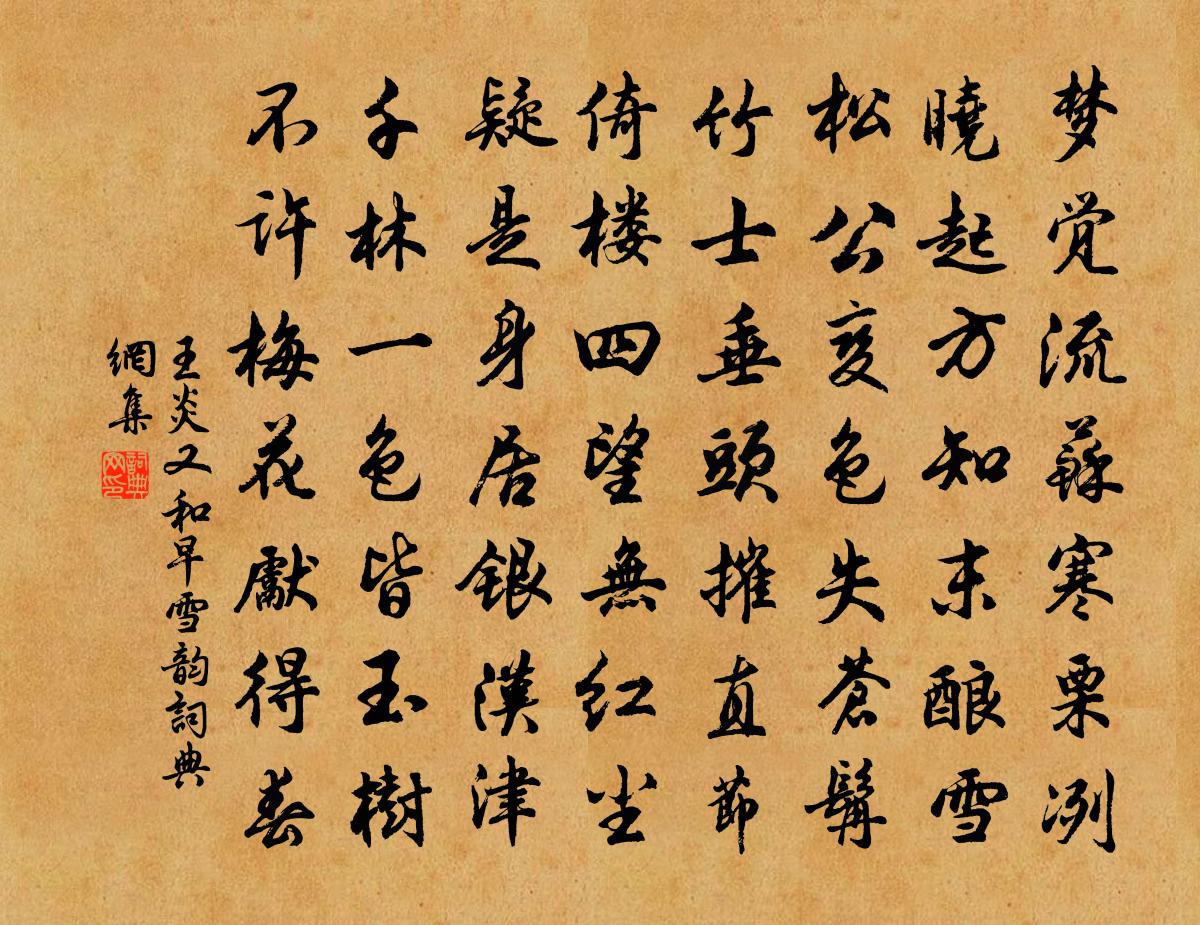 梦觉流蘇寒栗冽
曉起方知未酿雪
松公变色失蒼髯
竹士垂頭摧直節
倚楼四望無红尘
疑是身居銀漢津
千林一色皆玉樹
不许梅花獻得春
王炎又和早雪韵詞典
網集
詞典网印